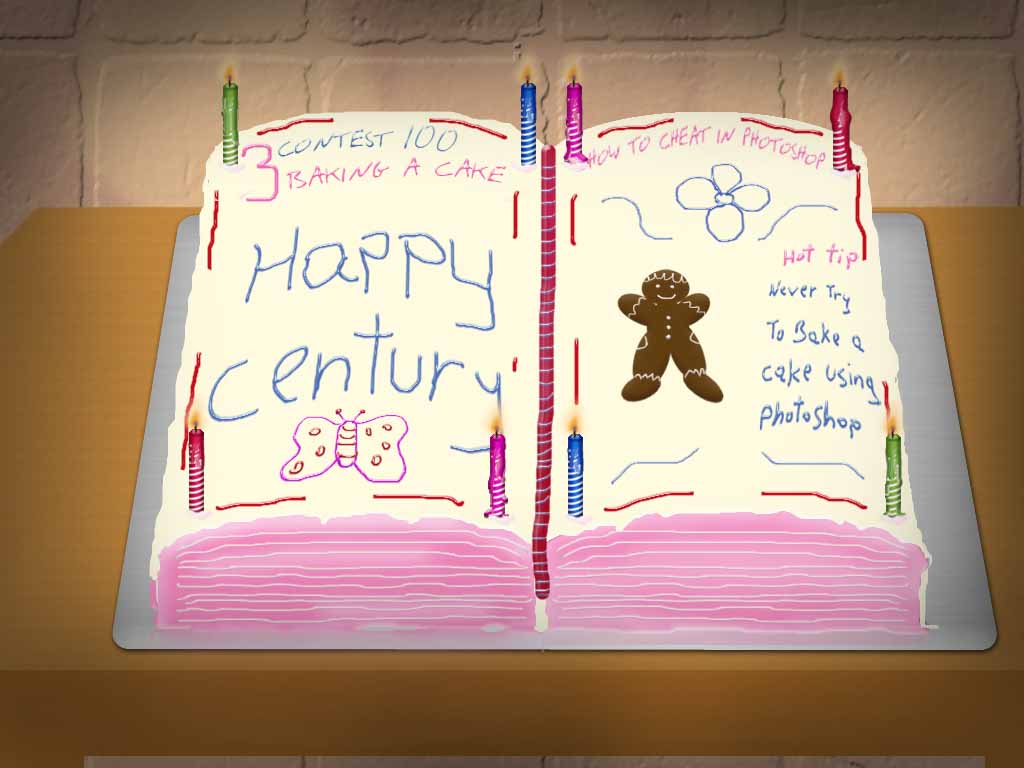 3 CONTEST 100
BAKING A CAKE
Happy
century
HOW TO CHEAT IN PHOTOSHOP
Hot tip
Never Try
To Bake a
cake using
photoshop